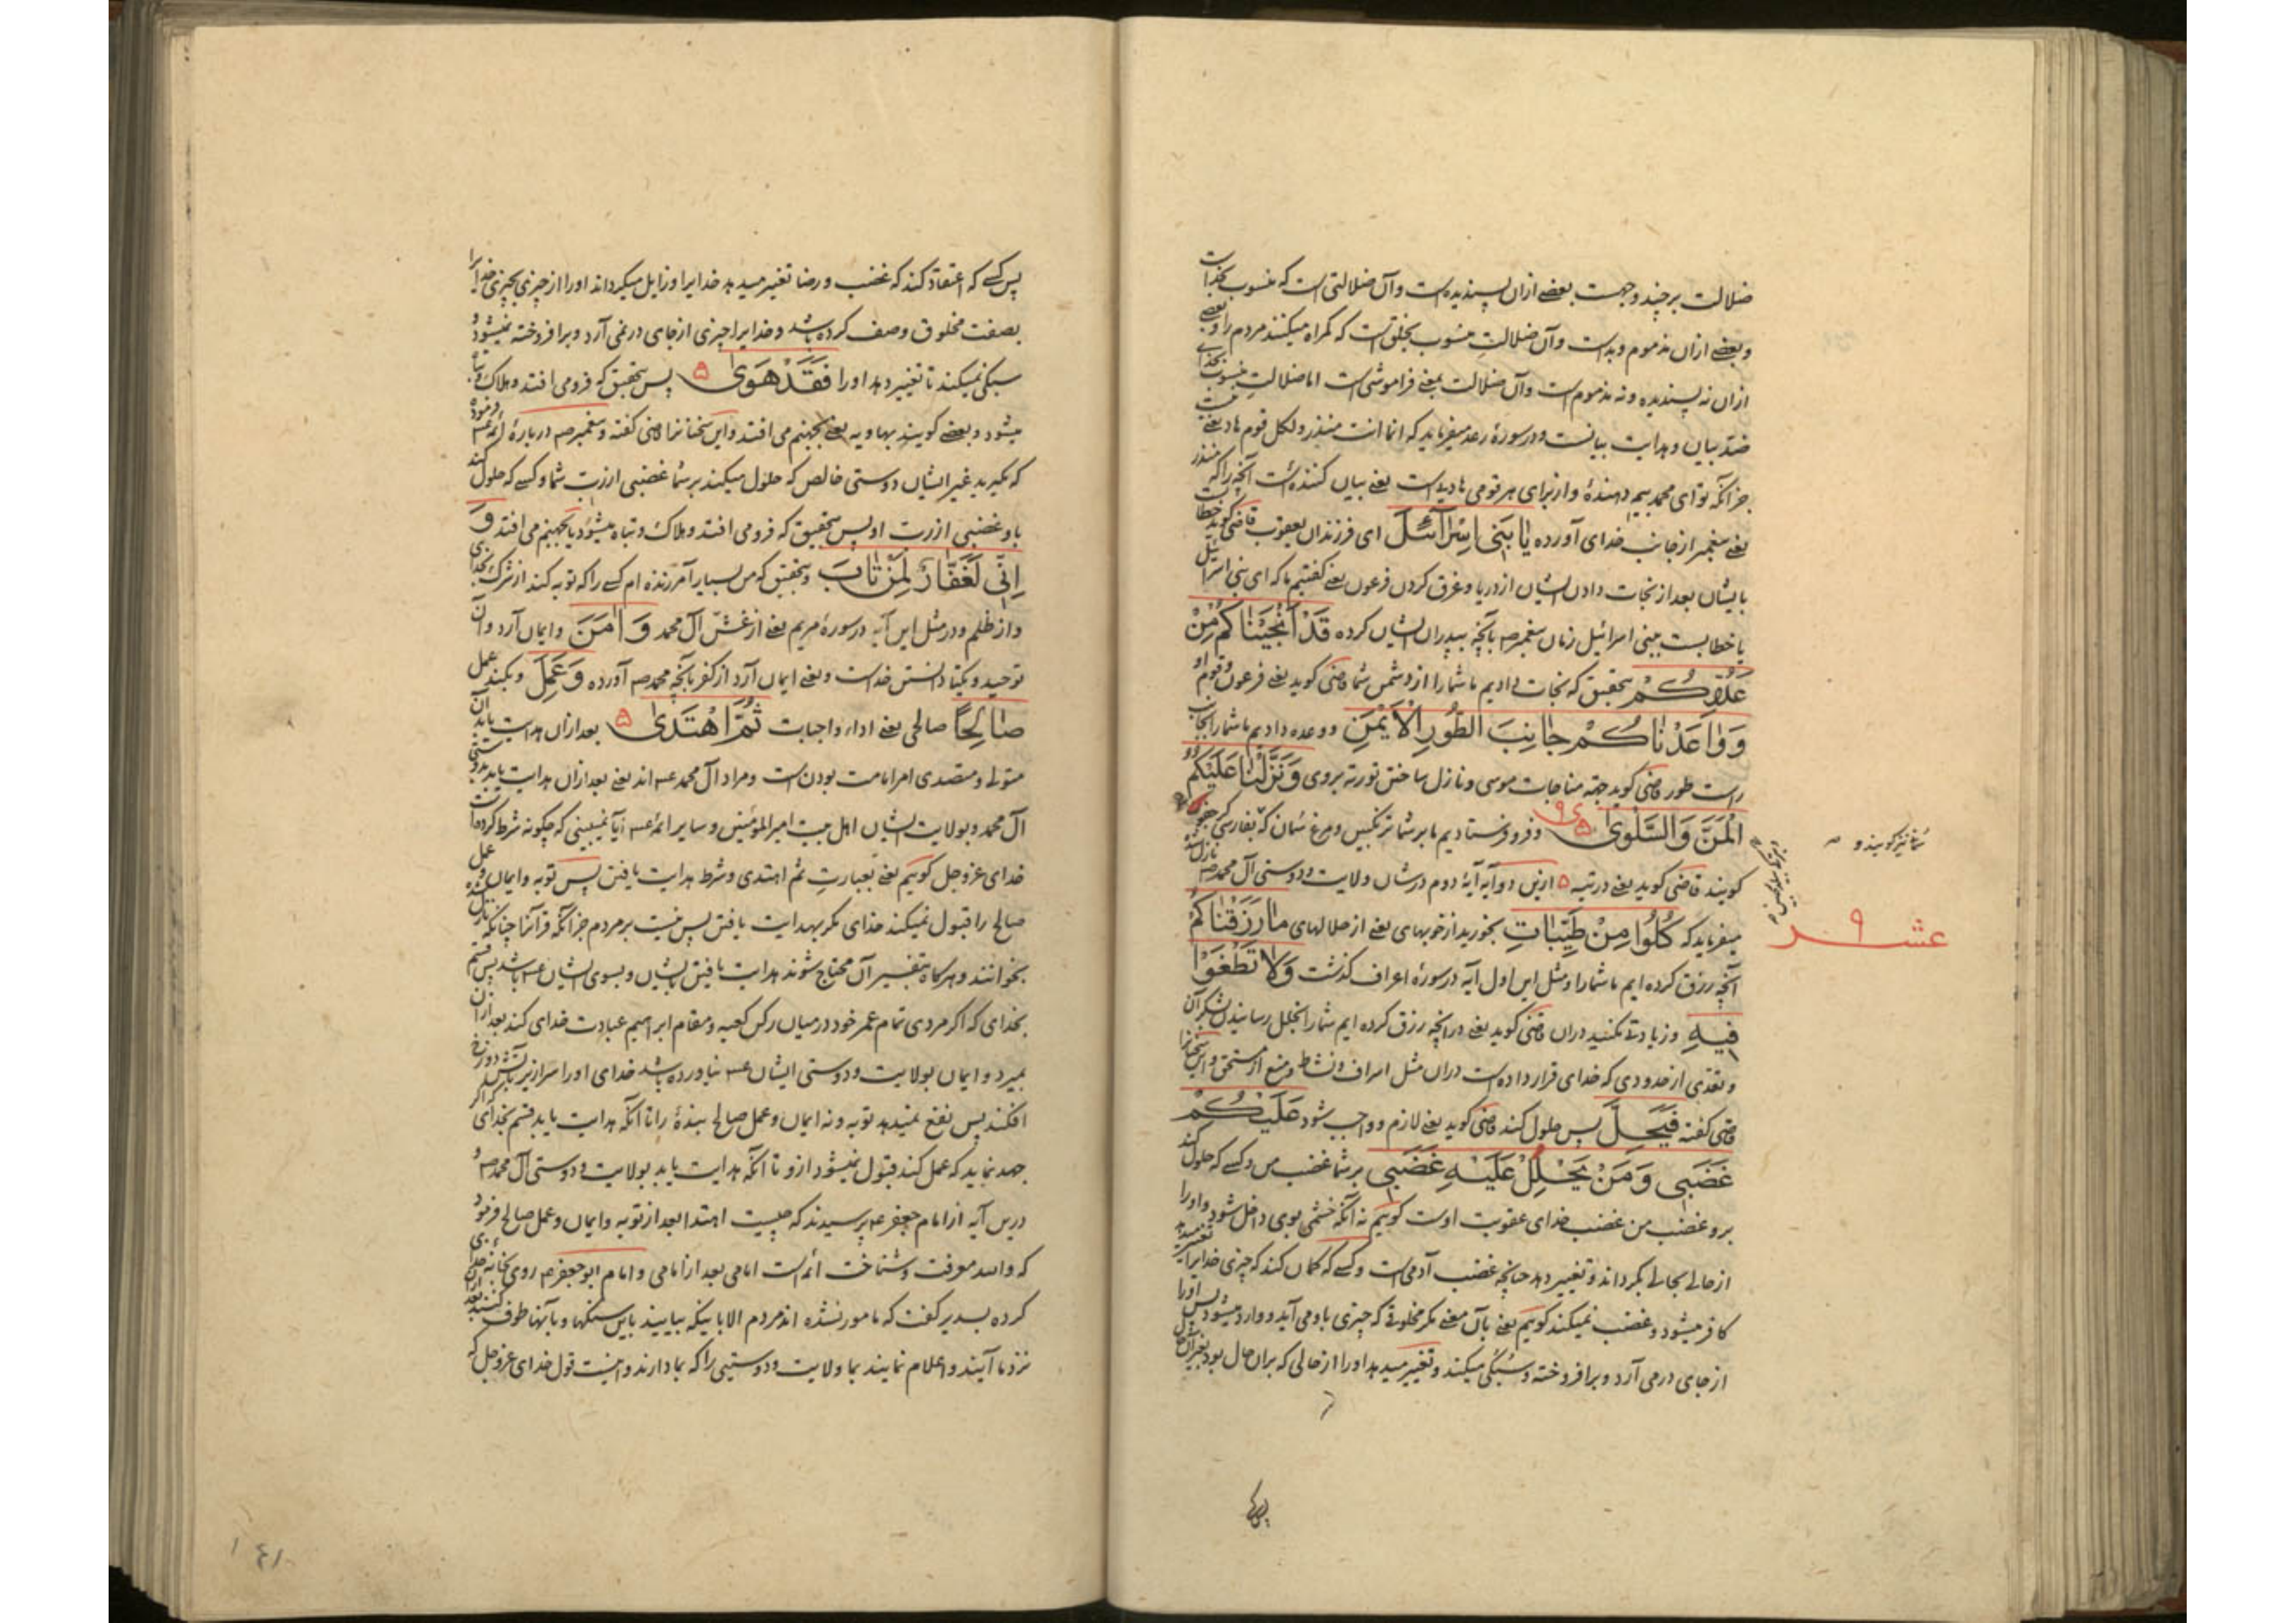 ضلالت بر چند وجهست بعضے ازان پسندیده است وآن ضلالتی است که منسوب بخداست
وبعضے ازان مذموم وبد است وآن ضلالت منسوب بخلق است که گمراه میکنند مردم را وبعضے
ازان نه پسندیده ونه مذموم است وآن ضلالت بمعنے فراموشی است اما ضلالت منسوب بخدای
ضد بیان وهدایت بیانست ودر سورهٔ رعد میفرماید که انما انت منذر ولکل قوم هاد یعنے نیست
جز آنکه تو ای محمد بیم دهندهٔ واز برای هر قومی هادیست یعنے بیان کننده است آنچه را که منذر
یعنے پیغمبر از جانب خدای آورده یَا بَنِی اِسْرَآئِلَ ای فرزندان یعقوب قاضی گوید خطاب
بایشان بعد از نجات دادن ایشان از دریا وغرق کردن فرعون یعنے گفتیم ما که ای بنی اسرائیل
یا خطابست ببنی اسرائیل زمان پیغمبر صه بآنچه بپدران ایشان کرده قَدْ اَنْجَیْنَاکُمْ مِنْ
عَدُوِّکُمْ بتحقیق که نجات دادیم ما شما را از دشمن شما قاضی گوید یعنے فرعون وقوم او
وَوٰاعَدْنَاکُمْ جٰانِبَ الطُّورِ الْاَیْمَنِ ووعده دادیم ما شما را بجانب
راست طور قاضی گوید جهة مناجات موسی ونازل ساختن توریة بروی وَنَزَّلْنَا عَلَیْکُمُ
الْمَنَّ وَالسَّلْوٰی ۵ وفرو فرستادیم ما بر شما ترنجبین ومرغ سُمان که بفارسی کرجفو
سُمانه نیز گویند و
گویند قاضی گوید یعنے در تیه ۵ ازین دو آیه آیهٔ دوم در شان ولایت ودوستی آل محمد صه نازل شده
عشر ۹
میفرماید که کُلُوا مِنْ طَیِّبَاتِ بخورید از خوبهای یعنے از حلالهای مٰا رَزَقْنَاکُمْ
آنچه رزق کرده ایم ما شما را ومثل این اول آیه در سورهٔ اعراف گذشت وَلَا تَطْغَوْا
فِیهِ وزیادتے مکنید دران قاضی گوید یعنے در آنچه رزق کرده ایم شما را بخلل رسانیدن بشکر آن
وتعدی از حدودی که خدای قرار داده است دران مثل اسراف ونشاط ومنع از مستحق واین سخنانرا
قاضی گفته فَیَحِلَّ پس حلول کند قاضی گوید یعنے لازم وواجب شود عَلَیْکُمْ
غَضَبِی وَمَنْ یَحْلِلْ عَلَیْهِ غَضَبِی بر شما غضب من وکسے که حلول کند
برو غضب من غضب خدای عقوبت اوست گوییم نه آنکه خشمی بوی داخل شود واورا
از حالے بحالے بگرداند وتغییر دهد چنانچه غضب آدمی است وکسے که گمان کند که چیزی خدایرا تغییر میدهد
کافر میشود وغضب نمیکند گوییم یعنے بآن معنے مگر مخلوقے که چیزی باو می آید ووارد میشود پس اورا
از جای در می آرد وبرافروخته وسبکی میکند وتغییر میدهد اورا از حالی که بران حال بود بغیر آن حال
پس کسے
پس کسے که اعتقاد کند که غضب ورضا تغییر میدهد خدایرا وزایل میگرداند اورا از چیزی بچیزی خدا را
بصفت مخلوق وصف کرده باشد وخدایرا چیزی از جای در نمی آرد وبرافروخته نمیشود و
سبکی نمیکند تا تغییر دهد اورا فَقَدْ هَوٰی ۵ پس بتحقیق که فرو می افتد وهلاک وتباه
میشود وبعضے گویند بهاویه یعنے بجهنم می افتد واین سخنانرا قاضی گفته وپیغمبر صه در بارهٔ ائمه عه فرموده
که مگیرید غیر ایشان دوستی خالص که حلول میکند بر شما غضبی از رب شما وکسے که حلول کند
باو غضبی از رب او پس بتحقیق که فرو می افتد وهلاک وتباه میشود یا بجهنم می افتد وَ
اِنِّی لَغَفَّارٌ لِمَنْ تٰابَ وبتحقیق که من بسیار آمرزنده ام کسے را که توبه کند از شرک بخدای
واز ظلم ودر مثل این آیه در سورهٔ مریم یعنے از غش آل محمد وَاٰمَنَ وایمان آرد وآن
توحید ویکتا دانستن خداست ویعنے ایمان آرد از کفر بآنچه محمد صه آورده وَعَمِلَ وبکند عمل
صٰالِحًا صالحی یعنے اداء واجبات ثُمَّ اهْتَدٰی ۵ بعد ازان هدایت یابد آن
متولے ومتصدی امر امامت بودن است ومراد آل محمد عه اند یعنے بعد ازان هدایت یابد بدوستی
آل محمد وبولایت ایشان اهل بیت امیر المومنین وسایر ائمهٔ عه آیا نمیبینی که چگونه شرط کرده است
خدای عزوجل گوییم یعنے بعبارتِ ثم اهتدی وشرط هدایت یافتن پس توبه وایمان وعمل
صالح را قبول نمیکند خدای مگر بهدایت یافتن پس نیست بر مردم جز آنکه قرآنرا چنانکه نازل شده
بخوانند وهرگاه بتفسیر آن محتاج شوند هدایت یافتن بایشان وبسوی ایشان عه باشد پس قسم
بخدای که اگر مردی تمام عمر خود در میان رکن کعبه ومقام ابراهیم عبادت خدای کند بعد ازان
بمیرد وایمان بولایت ودوستی ایشان عه نیاورده باشد خدای اورا سرازیر بآتش دوزخ
افکند پس نفع نمیدهد توبه ونه ایمان وعمل صالح بندهٔ را تا آنکه هدایت یابد قسم بخدای که اگر
جهد نماید که عمل کند قبول نمیشود ازو تا آنکه هدایت یابد بولایت ودوستی آل محمد صه و
درین آیه از امام جعفر عه پرسیدند که چیست اهتدا بعد از توبه وایمان وعمل صالح فرمود
که والله معرفت وشناخت ائمه است امامی بعد از امامی وامام ابو جعفر عه روی بخانهٔ خدای
کرده بسدیر گفت که مامور نشده اند مردم الا باینکه بیایند باین سنگها وبآنها طوف کنند بعد ازان
نزد ما آیند واعلام نمایند بما ولایت ودوستیی را که بما دارند واینست قول خدای عزوجل که